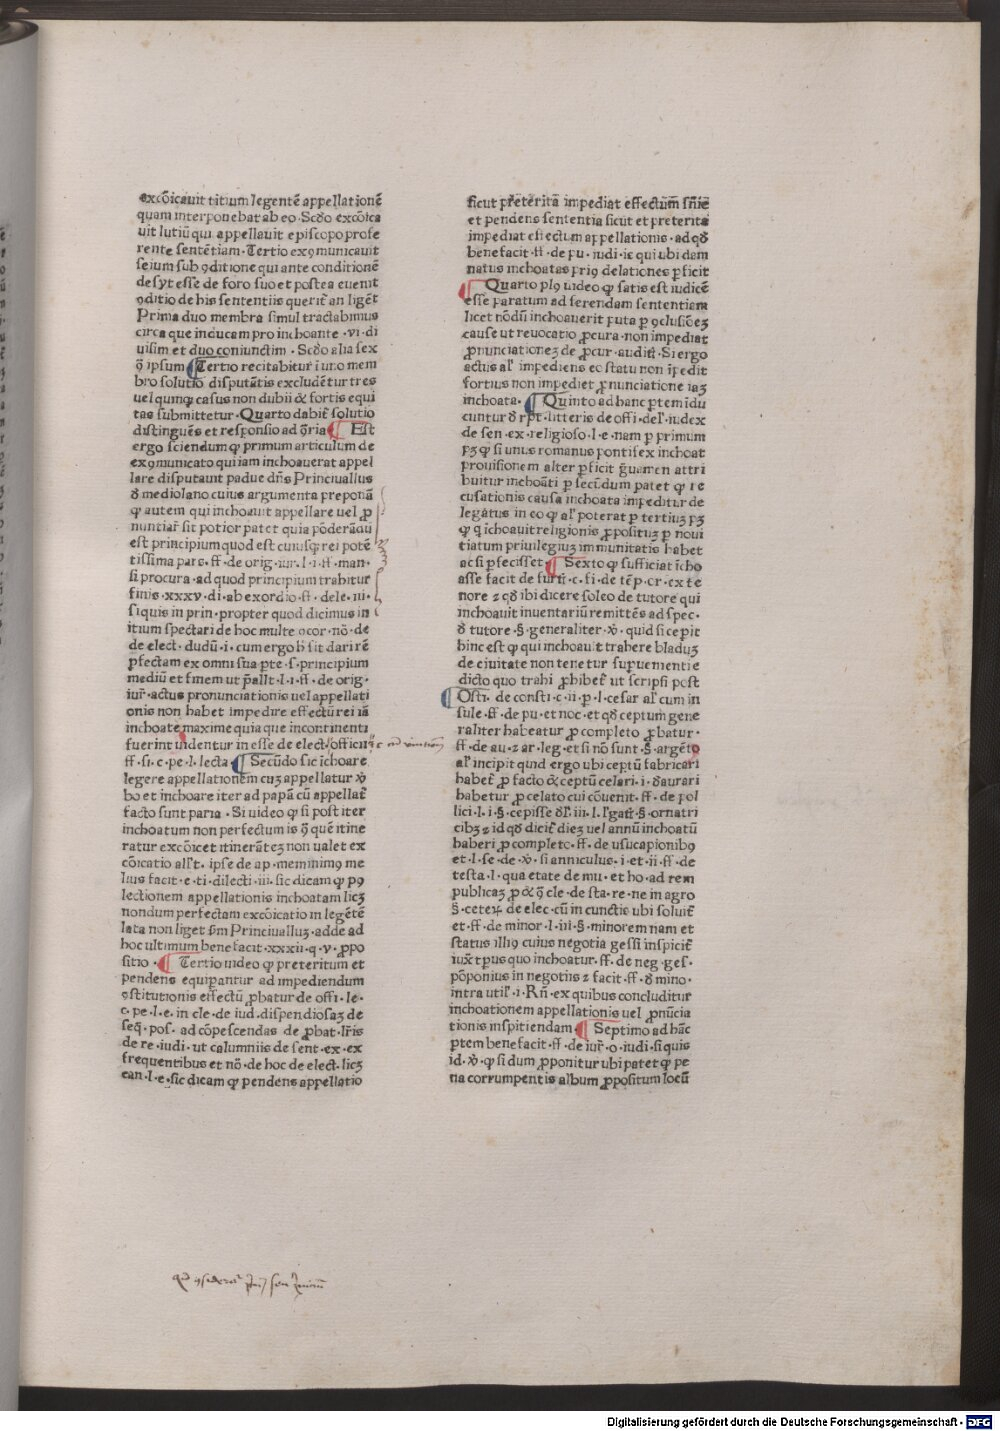 excōicauit titium legentē appellationē
quam interponebat ab eo · Scđo excōica
uit lutiū qui appellauit episcopo profe
rente sentētiam · Tertio exꝯmunicauit
seium sub ꝯditione qui ante conditionē
desyt esse de foro suo et postea euenit
ꝯditio de his sententiis querit᷑ an ligēt
Prima duo membra simul tractabimus
circa que inducam pro inchoante · vi · di
uisim et duo coniunctim · Scđo alia sex
ꝯ̄ ipsum ¶ Tertio recitabitur ī uno mem
bro solutio disputātis excludētur tres
uel qumqꝫ casus non dubii & fortis equi
tas submittetur · Quarto dabit᷑ solutio
distinguēs et responsio ad ꝯ̄ria ¶ Est
ergo sciendum ꝙ primum articulum de
exꝯmunicato qui iam inchoauerat appel
lare disputauit padue dn̄s Princiuallus
đ mediolano cuius argumenta preponā
ꝙ autem qui inchoauit appellare uel ꝓ
nuntiar̄ sit potior patet quia pōderādū
est principium quod est cuiusqꝫ rei potē
tissima pars · ff · de orig · iur · l · i · ff · man ·
si procura · ad quod principium trahitur
finis · xxxv · di · ab exordio · ff · dele · iii ·
si quis in prin · propter quod dicimus in
itium spectari de hoc multe ꝯcor · nō · de
de elect · dudū · i · cum ergo h̄ sit dari rē
ꝑfectam ex omni sua ꝑte · s · principium
mediū et finem ut ꝑall't · l · i · ff · de orig ·
iur̄ · actus pronunciationis uel appellati
onis non habet impedire effectū rei iā
inchoate maxime quia que incontinenti
fuerint uidentur in esse de elect · officii
ff · si · c · pe · l · lecta ¶ Secūdo sic īchoare
legere appellationem cuꝫ appellatur ꝟ
bo et inchoare iter ad papā cū appellat᷑
facto sunt paria · Si uideo ꝙ si post iter
inchoatum non perfectum is ꝯ̄ quē itine
ratur excōicet itinerāteꝫ non ualet ex
cōicatio all't · ipse de ap · meminimꝰ me
lius facit · e · ti · dilecti · iii · sic dicam ꝙ pꝰ
lectionem appellationis inchoatam licꝫ
nondum perfectam excōicatio in legētē
lata non liget s̄m Princiualluꝫ · adde ad
hoc ultimum bene facit · xxxii · q · v · ꝓpo
sitio · ¶ Tertio uideo ꝙ preteritum et
pendens equiꝑantur ad impediendum
ꝯstitutionis effectū ꝓbatur de offi · le ·
c · pe · l · e · in cle · de iud · dispendiosaꝫ de
seq̄ · pos · ad cōpescendas de ꝓbat · lr̄is
de re · iudi · ut calumniis de sent · ex · ex
frequentibus et nō · de hoc de elect · licꝫ
can · l · e · sic dicam ꝙ pendens appellatio
qđ ꝯsiderat
ficut p̄teritā impediat effectūm sn̄ie
et pendens sententia sicut et preterita
impediat effectum appellationis · ad qđ
bene facit · ff · de pu · iudi · is qui ubi dam
natus inchoatas priꝰ delationes ꝑficit
¶ Quarto plꝰ uideo ꝙ satis est iudicē
esse paratum ad ferendam sententiam
licet nōdū inchoauerit puta ꝑ ꝯclusiōeꝫ
cause ut reuocatio ꝓcura · non impediat
ꝓnunciationeꝫ de ꝓcur · audit᷑ · Si ergo
actus al' impediens eo statu non īpedit
fortius non impediet ꝓnunciatione iaꝫ
inchoata · ¶ Quinto ad hanc ꝑtem īdu
cuntur đ rp̄t · litteris de offi · del' · iudex
de sen · ex · religioso · l · e · nam ꝑ primum
pꝫ ꝙ si unus romanus pontifex inchoat
prouisionem alter ꝑficit g̃uamen attri
buitur inchoāti ꝑ secūdum patet ꝙ re
cusationis causa inchoata impeditur de
legatus in eo ꝙ al' poterat ꝑ tertiuꝫ pꝫ
ꝙ q̇ īchoauit religionis ꝓpositum ꝑ noui
tiatum priuilegiuꝫ immunitatis habet
ac si ꝑfecisset ¶ Sexto ꝙ sufficiat īcho
asse facit de furti · c · fi · de tēp · or · ex te
nore ⁊ qđ ibi dicere soleo de tutore qui
inchoauit inuentariū remittēs ad spec ·
đ tutore · § · generaliter · ꝟ · quid si cepit
hinc est ꝙ qui inchoauit trahere bladuꝫ
de ciuitate non tenetur supuenienti e
dicto quo trahi ꝓhibet᷑ ut scripsi post
¶ Osti · de consti · c · ii · p · l · cesar al' cum in
sule · ff · de pu · et noc · et qđ ceptum gene
raliter habeatur ꝓ completo ꝓbatur ·
ff · de au · ⁊ ar · leg · et si nō sunt · § · argēto
al' incipit quid ergo ubi ceptū fabricari
habet᷑ ꝓ facto & ceptū celari · i · đaurari
habetur ꝓ celato cui cōuenit · ff · de pol
lici · l · i · § · cepisse đl' · iii · l · l'gat᷑ · § · ornatri
cibꝫ ⁊ id qđ dicit᷑ dieꝫ uel annū inchoatū
haberi ꝓ completo · ff · de usucapionibꝰ
et · l · se · de · ꝟ · si anniculus · i · et · ii · ff · de
testa · l · qua etate de mu · et ho · ad rem
publicaꝫ ꝓ & ꝯ̄ cle · de sta · re · ne in agro
§ · ceteꝝ · de elec · cū in cunctis ubi soluit᷑
et · ff · de minor · l · iii · § · minorem nam et
status illiꝰ cuius negotia gessi inspicit᷑
iuxt̄ tꝑus quo inchoatur · ff · de neg · ges ·
pōponius in negotiis ⁊ facit · ff · đ mino ·
intra util' · i · Rn̄ · ex quibus concluditur
inchoationem appellationis uel ꝓnūcia
tionis inspitiendam ¶ Septimo ad hāc
ꝑtem bene facit · ff · de iur̄ · o · iudi · si quis
id · ꝟ · ꝙ si dum ꝓponitur ubi patet ꝙ pe
na corrumpentis album ꝓpositum locū
Digitalisierung gefördert durch die Deutsche Forschungsgemeinschaft - DFG